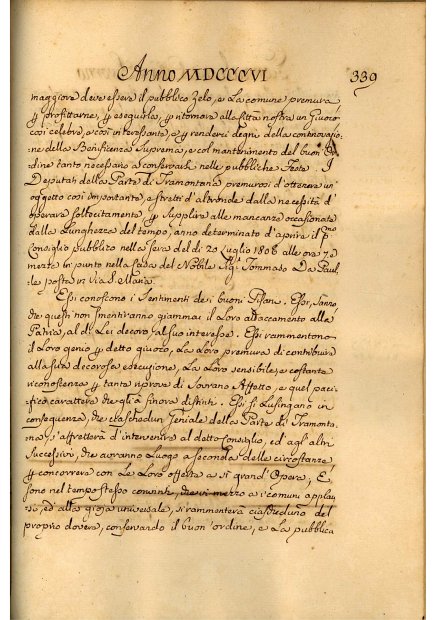 Anno MDCCCVI 339
maggiore deve essere il pubblico Zelo, e La comune premura
profittarne, eseguirla, ritornare alla Città nostra un Giuoco
così celebre, e così interessante, e renderci degni della continovazio-
ne della Beneficenza Suprema, e col mantenimento del buon or-
dine tanto necessario a conservarsi nelle pubbliche Feste. I
Deputati della Parte di Tramontana premurosi d'ottenere un
oggetto così importante, e stretti d'altronde dalla necessità d'
operare sollecitamente, Supplire alle mancanze occasionate
dalla Lunghezza del tempo, anno determinato d'aprire il pmo
Consiglio pubblico nella sera del dì 20 Luglio 1806 alle ore 7, e
mezza in punto nella Casa del Nobile Tommaso Da Paul-
le posta in Via S. Maria.
Essi conoscono i Sentimenti dei buoni Pisani. Essi, Sanno
che questi non smentiranno giammai il Loro attaccamento alla
Patria, al di Lei decoro, al suo interesse. Essi rammentono
il Loro genio detto giuoco, La Loro premura di contribuire
alla sua decorosa esecuzione, La Loro sensibile, e costante
riconoscenza tante riprove di Sovrano Affetto, e quel paci-
fico carattere che gli à finora distinti. Essi si Lusingano in
conseguenza, che ciaschedun Geniale della Parte di Tramonta-
na, s'affretterà d'intervenire al detto Consiglio, ed agl'altri
Successivi, che avranno Luogo a seconda delle circostanze
concorrerà con Le Loro offerte a sì grand'Opera, E
sono nel tempo stesso convinti, che in mezzo a i comuni applau-
si, ed alla gioja universale, si rammenterà ciascheduno del
proprio dovere, conservando il buon'ordine, e La pubblica